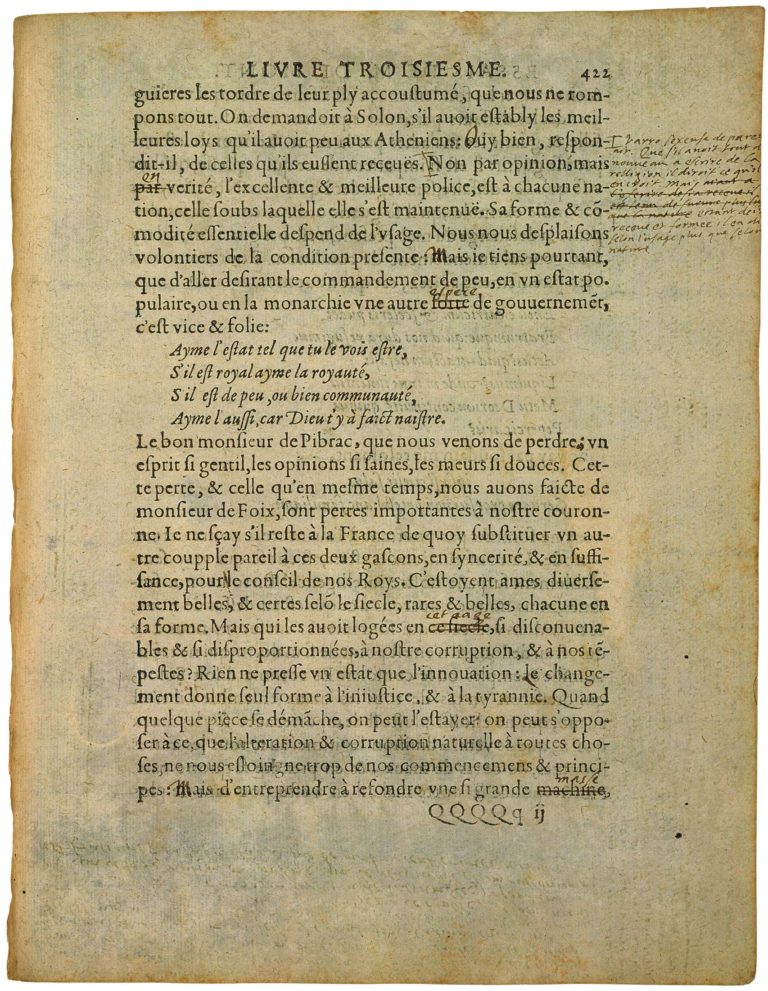 LIVRE TROISIESME. 422
guieres les tordre de leur ply accoustumé, que nous ne rom-
pons tout. On demandoit à Solon, s'il auoit estably les meil-
leures loys qu'il auoit peu aux Atheniens: Ouy bien, respon-
dit-il, de celles qu'ils eussent receuës. Non par opinion, mais
en
par verité, l'excellente & meilleure police, est à chacune na-
tion, celle soubs laquelle elle s'est maintenuë. Sa forme & cō-
modité essentielle despend de l'vsage. Nous nous desplaisons
volontiers de la condition presente: Mais ie tiens pourtant,
que d'aller desirant le commandement de peu, en vn estat po-
espece
pulaire, ou en la monarchie vne autre sorte de gouuernemēt,
c'est vice & folie:
Ayme l'estat tel que tu le vois estre,
S'il est royal ayme la royauté,
S'il est de peu, ou bien communauté,
Ayme l'aussi, car Dieu t'y à faict naistre.
Le bon monsieur de Pibrac, que nous venons de perdre, vn
esprit si gentil, les opinions si saines, les meurs si douces. Cet-
te perte, & celle qu'en mesme temps, nous auons faicte de
monsieur de Foix, sont pertes importantes à nostre couron-
ne. Ie ne sçay s'il reste à la France de quoy substituer vn au-
tre coupple pareil à ces deux gascons, en syncerité, & en suffi-
sance, pour le conseil de nos Roys. C'estoyent ames diuerse-
ment belles, & certes selō le siecle, rares & belles, chacune en
cet aage
sa forme. Mais qui les auoit logées en ce siecle, si disconuena-
bles & si disproportionnées, à nostre corruption, & à nos tē-
pestes? Rien ne presse vn estat que l'innouation: Le change-
ment donne seul forme à l'iniustice, & à la tyrannie. Quand
quelque piece se démāche, on peut l'estayer: on peut s'oppo-
ser à ce, que l'alteration & corruption naturelle à toutes cho-
ses, ne nous esloingne trop de nos commencemens & princi-
masse
pes: Mais d'entreprendre à refondre vne si grande machine,
QQQQq ij
Varro s'excuse de pareil
air. Que s'il auoit tout de
nouueau a escrire de la
religion il diroit ce qu'il
en croit mais
estant desia
receue et formee il en dira
selon l'usage plus que selon
nature